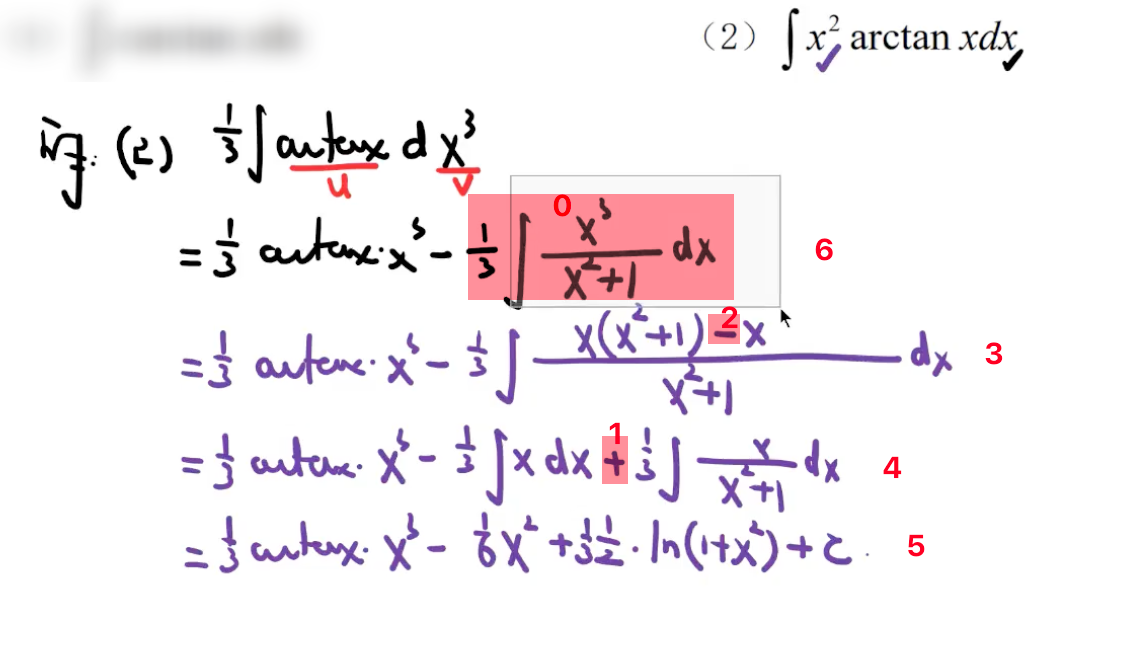 （2） ∫ x² arctan xdx
(2) 1/3 ∫ arctanx d x³
u v
0
= 1/3 arctanx·x³ - 1/3 ∫ x³/(x²+1) dx 6
2
= 1/3 arctanx·x³ - 1/3 ∫ (x(x²+1)-x)/(x²+1) dx 3
1
= 1/3 arctanx·x³ - 1/3 ∫ x dx + 1/3 ∫ x/(x²+1) dx 4
= 1/3 arctanx·x³ - 1/6 x² + 1/3 1/2·ln(1+x²)+c. 5